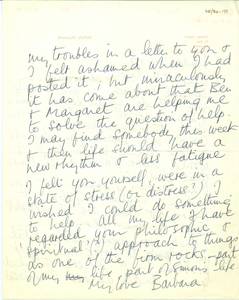 my troubles in a letter to you &
I felt ashamed when I had
posted it; but miraculously
it has come about that Ben
& Margaret are helping me
to solve the question of help.
I may find somebody this week
& then life should have a
new rhythm & less fatigue
I felt you yourself, were in a
state of stress (or distress?). I
wished I could do something
to help. All my life I have
regarded your philosophic &
spiritual approach to things
as one of the firm rocks, part
of my life, part of Simon's life
My love Barbara